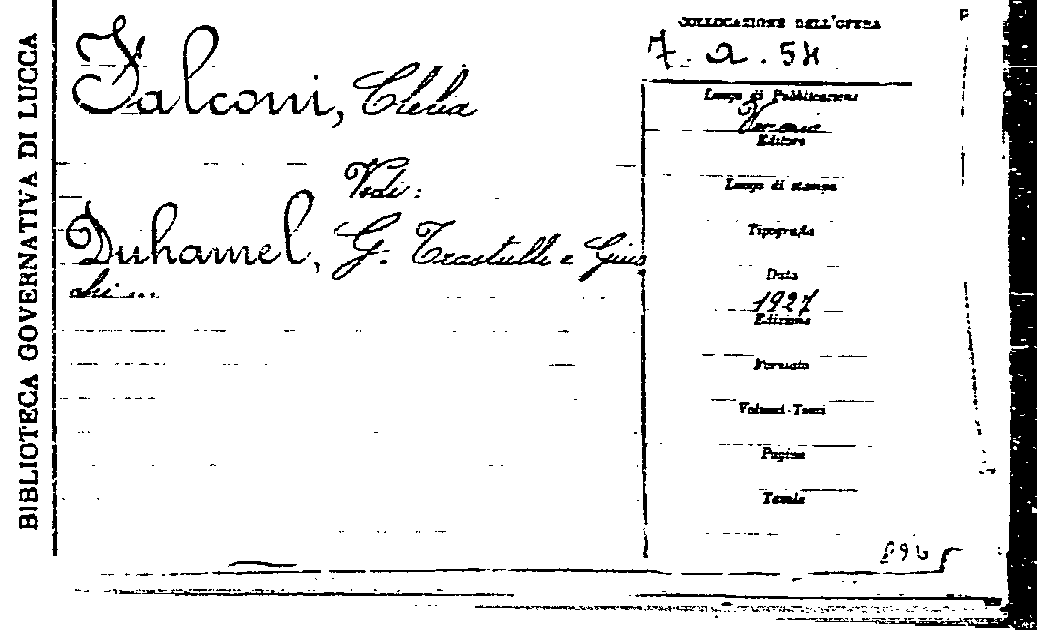 BIBLIOTECA GOVERNATIVA DI LUCCA
Falconi, Clelia
Vedi:
Duhamel, G. Trastulli e Giuo
chi ...
COLLOCAZIONE DELL'OPERA
7. a. 54
Luogo di Pubblicazione
Editore
Luogo di stampa
Tipografia
Data
1927
Edizione
Formato
Volumi-Tomi
Pagine
Tavole